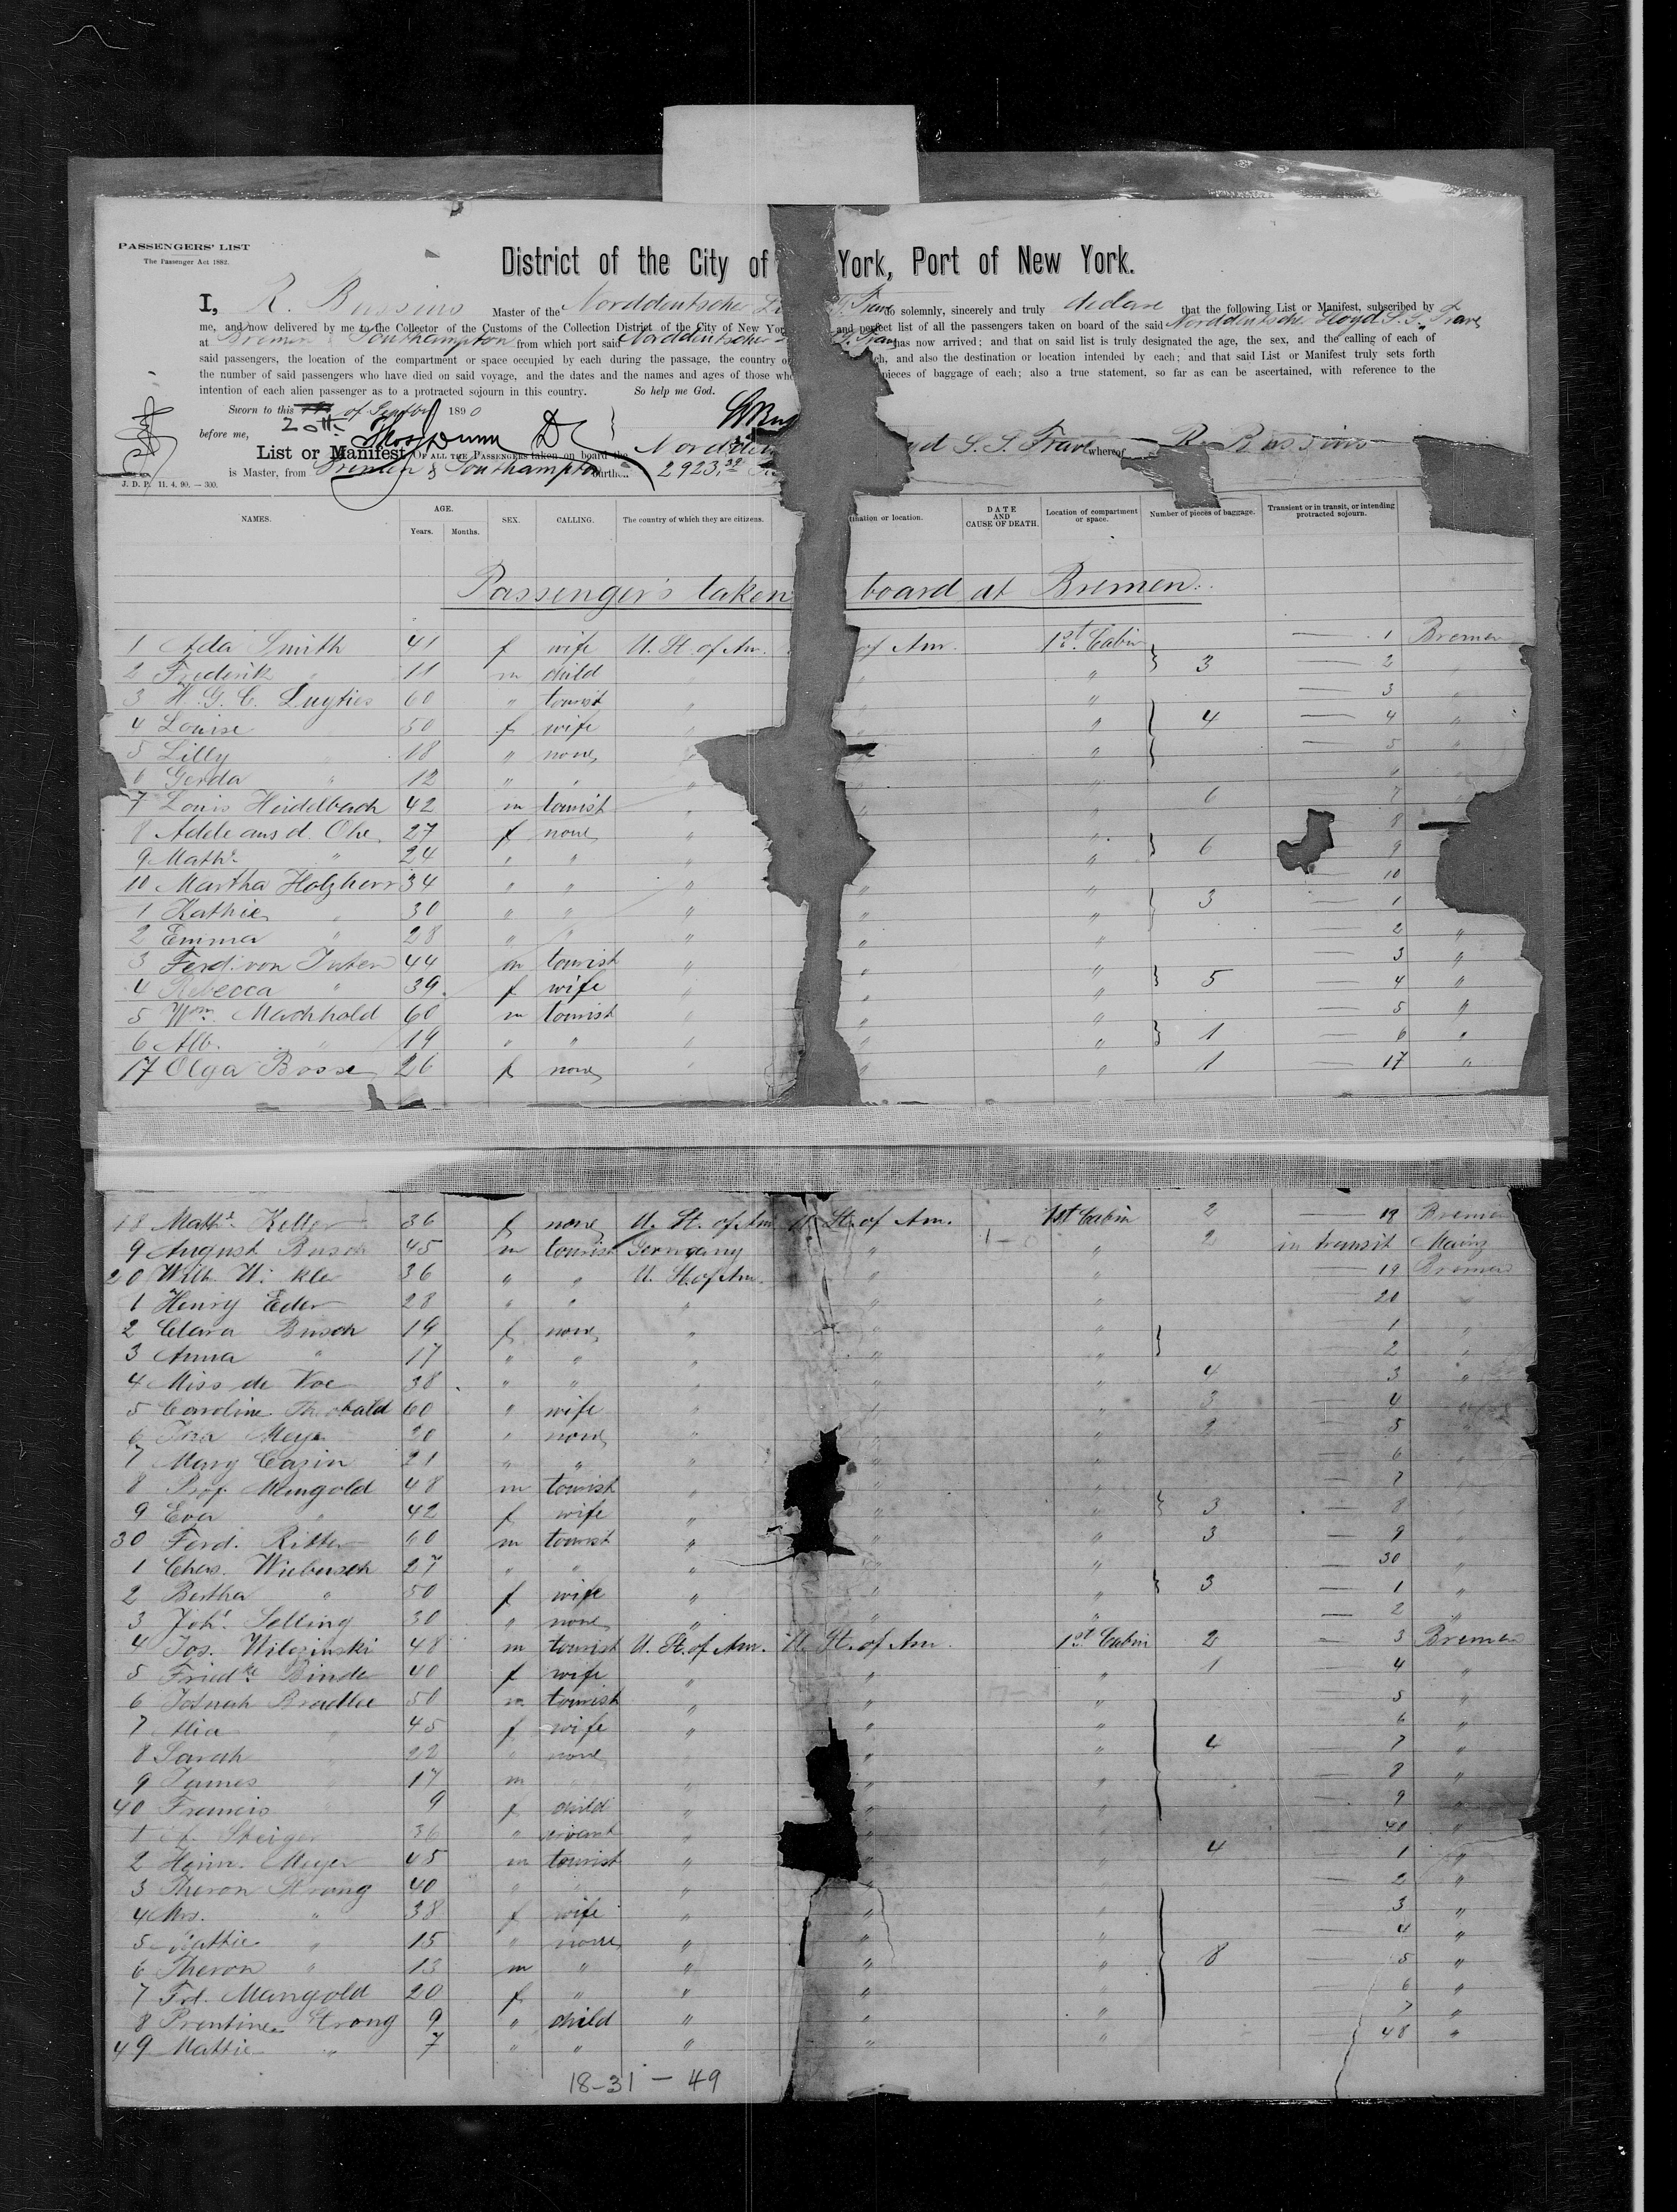 PASSENGERS' LIST
The Passenger Act 1882.
District of the City of York, Port of New York.
I, R. Bussius Master of the Norddeutsche S. Trave do solemnly, sincerely and truly declare that the following List or Manifest, subscribed by
me, and now delivered by me to the Collector of the Customs of the Collection District of the City of New Yor and perfect list of all the passengers taken on board of the said Norddeutsche Lloyd S. S. Trave
at Bremen & Southampton from which port said Norddeutsche S. Trave has now arrived; and that on said list is truly designated the age, the sex, and the calling of each of
said passengers, the location of the compartment or space occupied by each during the passage, the country o ch, and also the destination or location intended by each; and that said List or Manifest truly sets forth
the number of said passengers who have died on said voyage, and the dates and the names and ages of those wh pieces of baggage of each; also a true statement, so far as can be ascertained, with reference to the
intention of each alien passenger as to a protracted sojourn in this country. So help me God.
Sworn to this 20th of Septbr 1890
before me,
List or Manifest OF ALL THE PASSENGERS taken on board the Nordde S. S. Trave whereof R. Bussius
is Master, from Bremen & Southampton burthen 2923,
J. D. P. 11. 4. 90. — 300.
NAMES. AGE. SEX. CALLING. The country of which they are citizens. tination or location. DATE AND CAUSE OF DEATH. Location of compartment or space. Number of pieces of baggage. Transient or in transit, or intending protracted sojourn.
Years. Months.
Passengers taken board at Bremen.
1 Ada Smith 41 f wife U. St. of Am. of Am. 1st Cabin — 1 Bremen
2 Frederik " 11 m child " " " 3 — 2 "
3 H. G. C. Luyties 60 " tourist " " " — 3 "
4 Louise 50 f wife " " " 4 — 4 "
5 Lilly " 18 " none " " — 5 "
6 Gerda " 12 " " " "
7 Louis Heidelbach 42 m tourist " " " 6 7
8 Adele aus d. Ohe 27 f none " " 8
9 Mathe " 24 " " " " " 6 9
10 Martha Holzherr 34 " " " " " — 10
1 Kathie " 30 " " " " " 3 — 1
2 Emma " 28 " " " " " — 2 "
3 Ferd. von 44 m tourist " " " — 3 "
4 Rebecca " 39 f wife " " " 5 — 4 "
5 Wm. Machhold 60 m tourist " " " — 5 "
6 Alb. " 19 " " " " " 1 — 6 "
17 Olga Bosse 26 f none " " " 1 — 17 "
18 Mathe Keller 36 f none U. St. of Am. U. St. of Am. 1st Cabin 2 — 18 Bremen
9 August Busch 45 m tourist Germany " " 2 in transit Mainz
20 Wilh. 36 " " U. St. of Am. " " — 19 Bremen
1 Henry Eder 28 " " " " " — 20 "
2 Clara Busch 19 f none " " " — 1 "
3 Anna " 17 " " " " " — 2 "
4 Miss de Voe 38 " " " " " 4 — 3 "
5 Caroline Theobald 60 " wife " " " 3 — 4 "
6 Meyer 20 " none " " " 2 — 5 "
7 Mary Cazin 21 " " " " " — 6 "
8 Prof. Mangold 48 m tourist " " " — 7
9 Eva " 42 f wife " " " 3 — 8 "
30 Ferd. Ritter 60 m tourist " " " 3 — 9 "
1 Chas. Wiebusch 27 " " " " " — 30 "
2 Bertha " 50 f wife " " " 3 — 1 "
3 Johe Selling 30 " none " " " — 2 "
4 Jos. Wilczinski 48 m tourist U. St. of Am. U. St. of Am. 1st Cabin 2 — 3 Bremen
5 Friedke Binde 40 f wife " " " 1 — 4 "
6 Josuah Bradlee 50 m tourist " " " — 5 "
7 Alia " 45 f wife " " " — 6 "
8 Sarah " 22 " none " " 4 — 7 "
9 James " 17 m " " " — 8 "
40 Francis 9 f child " " — 9 "
1 Steiger 36 " servant " " — 40 "
2 Heinr. Meyer 45 m tourist " " " 4 — 1 "
3 Theron Strong 40 " " " " — 2 "
4 Mrs. " 38 f wife " " " — 3 "
5 Hattie " 15 " none " " " — 4 "
6 Theron " 13 m " " " " 8 — 5 "
7 Frl. Mangold 20 f " " " " — 6 "
8 Prentine Strong 9 " child " " " — 7 "
49 Mattie " 7 " " " " " — 48 "
18-31 — 49